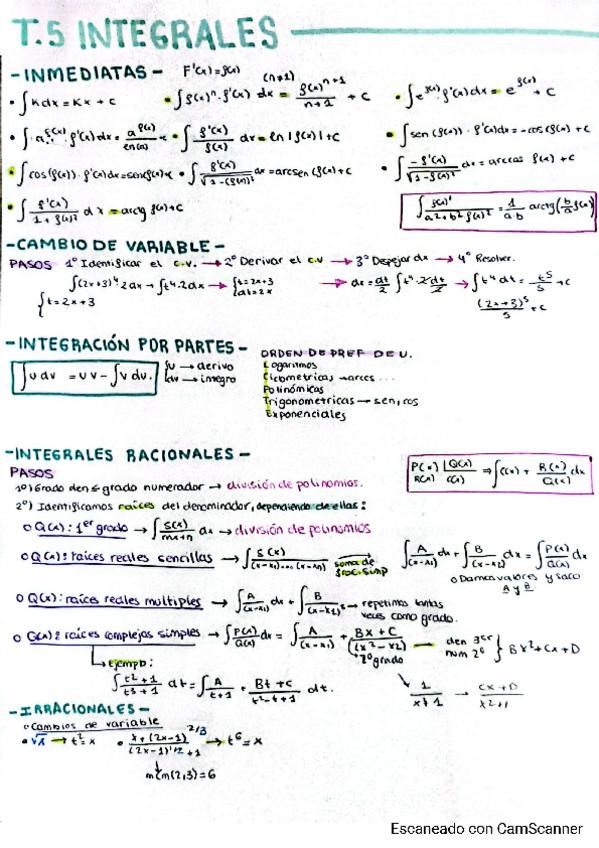 T.5 INTEGRALES
- INMEDIATAS - F'(x) = f(x)
• ∫k dx = Kx + c • ∫f(x)^n · f'(x) dx = f(x)^(n+1) / (n+1) + c (n≠1) • ∫e^f(x) f'(x) dx = e^f(x) + c
• ∫a^f(x) · f'(x) dx = a^f(x) / ln(a) + c • ∫f'(x) / f(x) dx = ln |f(x)| + c • ∫sen (f(x)) · f'(x) dx = -cos (f(x)) + c
• ∫cos(f(x)) · f'(x) dx = sen f(x) + c • ∫f'(x) / √(1-(f(x))²) dx = arcsen (f(x)) + c • ∫-f'(x) / √(1-f(x)²) dx = arccos f(x) + c
• ∫f'(x) / (1+f(x)²) dx = arctg f(x) + c ∫f(x)' / (a²+b² f(x)²) = 1/(a·b) arctg(b/a f(x))
- CAMBIO DE VARIABLE -
PASOS 1º Identificar el c.v. → 2º Derivar el c.v → 3º Despejar dx → 4º Resolver.
∫(2x+3)⁴ 2dx → ∫t⁴·2dx → {t=2x+3 dt=2x → dx = dt/2 ∫t⁴·2·dt/2 → ∫t⁴ dt = t⁵/5 + c
{t=2x+3 (2x+3)⁵/5 + c
- INTEGRACIÓN POR PARTES - ORDEN DE PREF DE U.
∫u dv = uv - ∫v du. {u → derivo Logaritmos
dv → integro Ciclometricas → arcos ...
Polinómicas
Trigonometricas → sen, cos
Exponenciales
- INTEGRALES RACIONALES -
PASOS P(x) |Q(x) R(x) C(x) ⇒ ∫C(x) + R(x)/Q(x) dx
1º) Grado den ≤ grado numerador → división de polinomios.
2º) Identificamos raíces del denominador, dependiendo de ellas:
o Q(x): 1er grado → ∫S(x)/(mx+n) dx → división de polinomios
o Q(x): raíces reales sencillas → ∫S(x)/((x-x1)...(x-xn)) suma de frac. simp ∫A/(x-x1) dx + ∫B/(x-x2) dx = ∫P(x)/Q(x) dx
o Damos valores y saco A y B
o Q(x): raíces reales multiples → ∫A/(x-x1) dx + ∫B/(x-x1)² → repetimos tantas veces como grado.
o Q(x): raíces complejas simples → ∫P(x)/Q(x) dx = ∫A/(x-x1) + Bx+C/(x²-x2) → den 3er num 2º } Bx²+Cx+D
2º grado
Ejemplo:
∫(t²+1)/(t³+1) dt = ∫A/(t+1) + (Bt+c)/(t²-t+1) dt. 1/(x⁴+1) → (Cx+D)/(x²+1)
- IRRACIONALES -
o Cambios de variable
• √x → t²=x • (x+(2x-1)^2/3) / ((2x-1)^1/2 + 1) → t⁶=x
mcm(2,3)=6
Escaneado con CamScanner